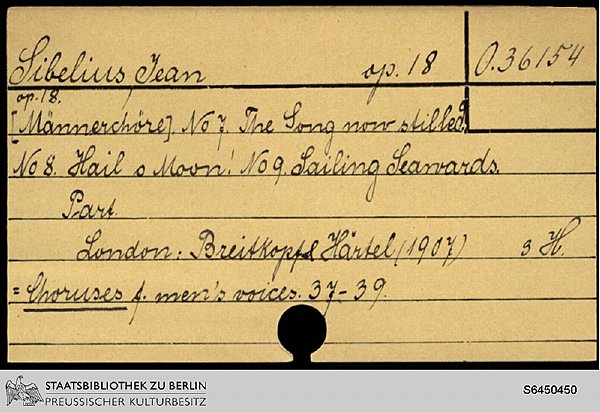 Sibelius, Jean op. 18 O.36154
op. 18.
[Männerchöre] No 7. The Song now stilled.
No 8. Hail o Moon! No 9. Sailing Seawards.
Part.
London: Breitkopf & Härtel (1907) 3 H.
= Choruses f. men's voices. 37-39.
STAATSBIBLIOTHEK ZU BERLIN
PREUSSISCHER KULTURBESITZ
S6450450